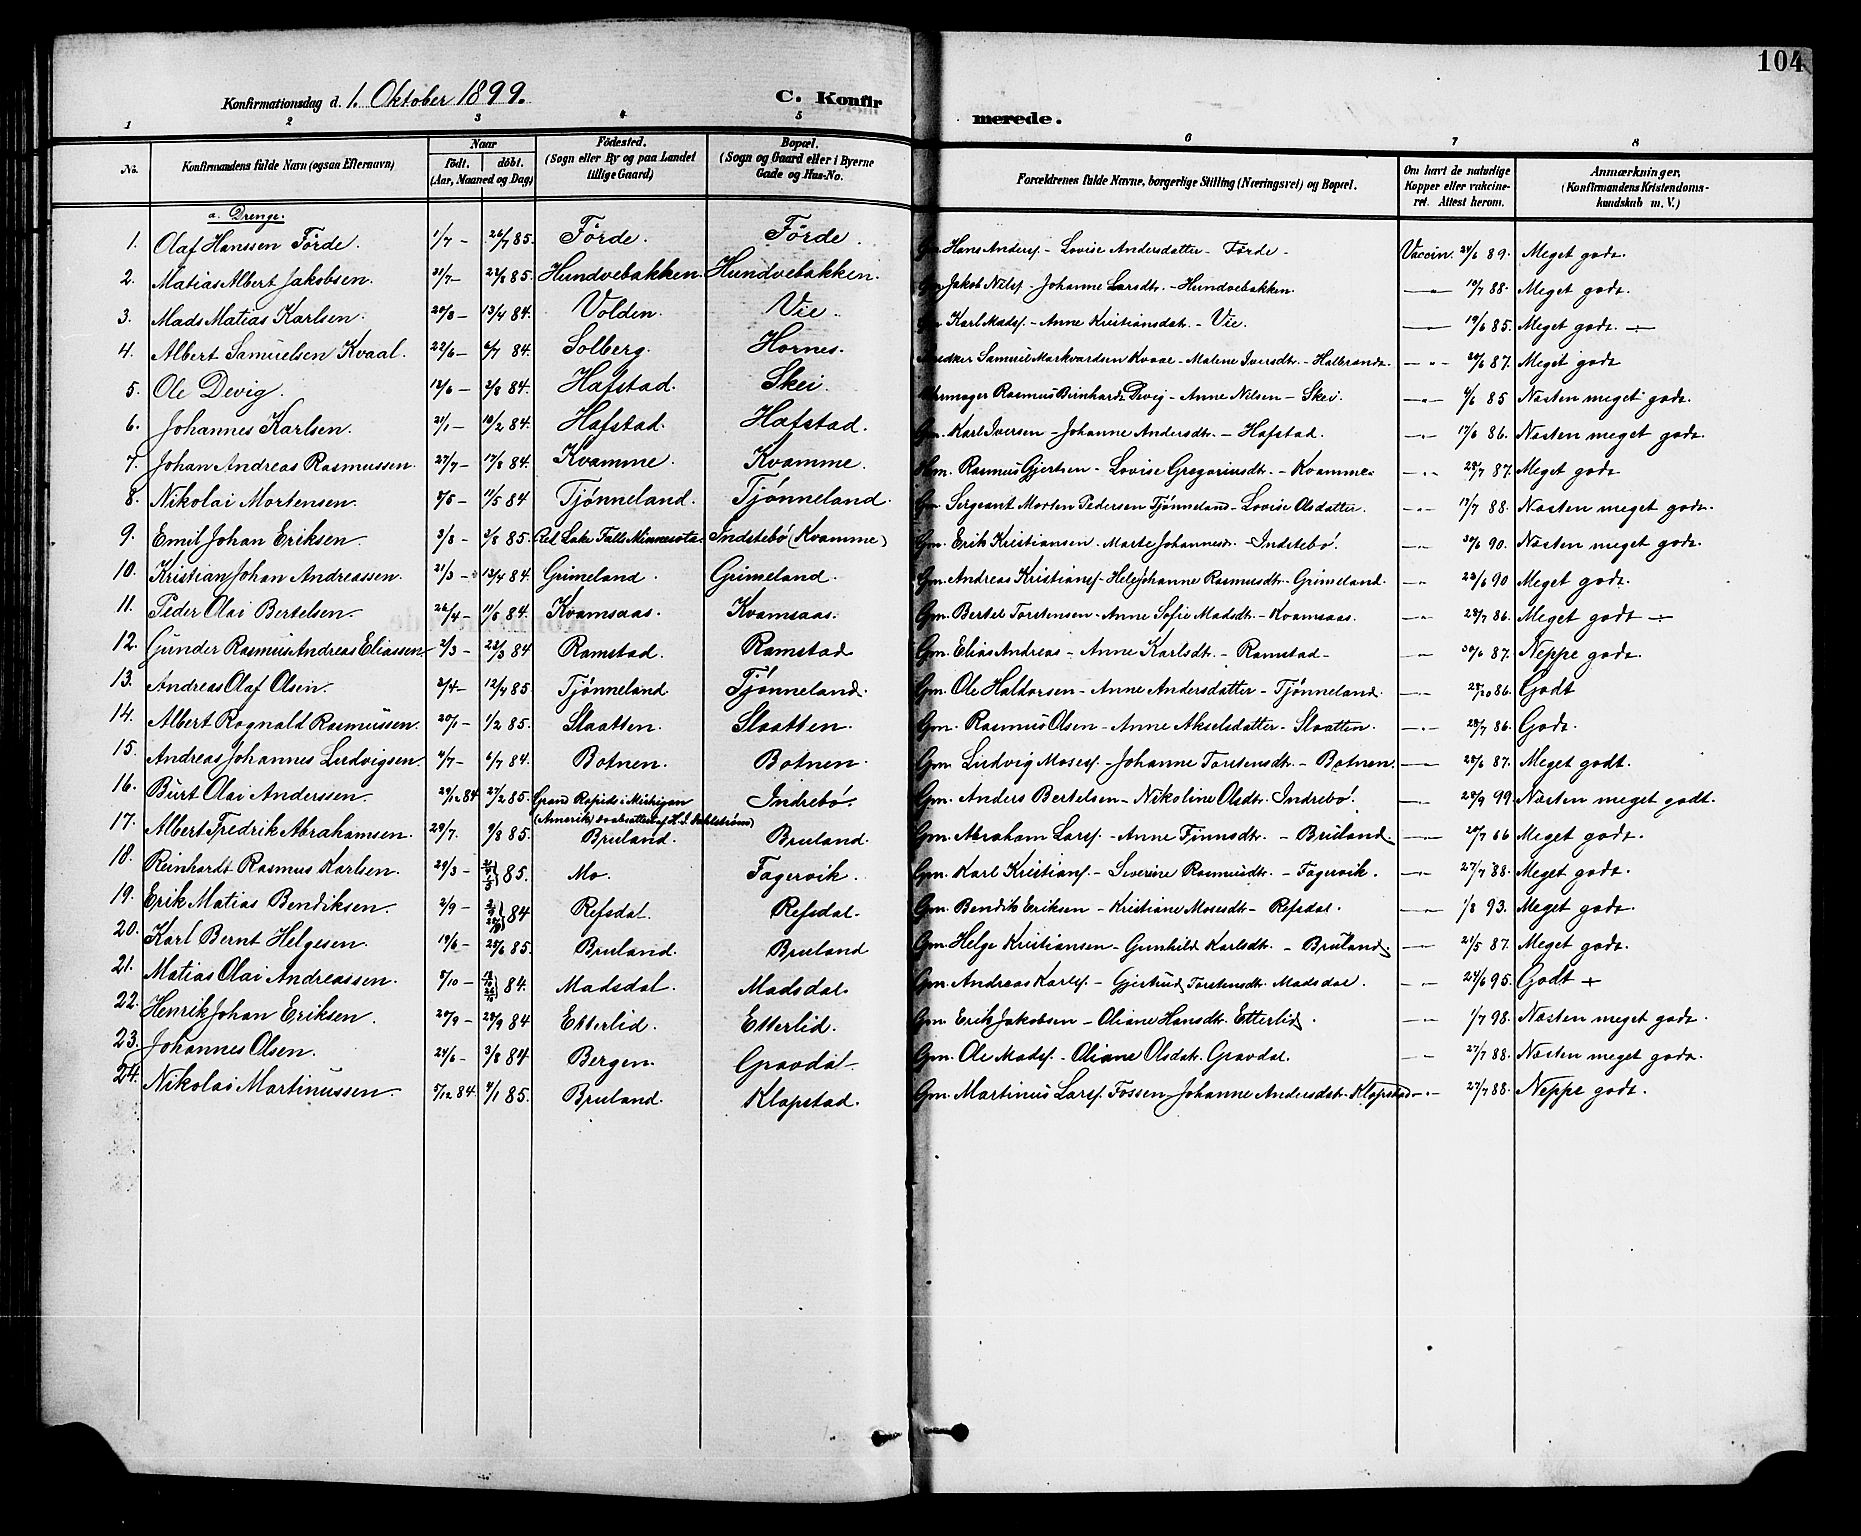 104
Konfirmationsdag d. 1. Oktober 1899. C. Konfirmerede.
1 2 3 4 5 6 7 8
No. Konfirmandens fulde Navn (ogsaa Efternavn) Naar født. døbt. (Aar, Maaned og Dag) Fødested. (Sogn eller By og paa Landet tillige Gaard) Bopæl. (Sogn og Gaard eller i Byerne Gade og Hus-No. Forældrenes fulde Navne, borgerlige Stilling (Næringsvei) og Bopæl. Om havt de naturlige Kopper eller vakcineret. Attest herom. Anmærkninger. (Konfirmandens Kristendomskundskab m. V.)
a. Drenge.
1. Olaf Hanssen Förde. 1/7 - 26/7 85. Förde. Förde. Gm. Hans Andersf - Lovise Andersdatter - Förde - Vaccin. 24/6 89. Meget godt.
2. Matias Albert Jakobsen. 31/7 - 85. Hundvebakken. Hundvebakken. Gm. Jakob Nilsf - Johanne Larsdtr. - Hundvebakken. 88. Meget godt.
3. Mads Matias Karlsen. 13/4 84. Volden. Vie. Karl Madsf. - Anne Kristiansdat. - Vie. 19/6 85. Meget godt. -
4. Albert Samuelsen Kvaal. 22/6 - 6/7 84. Solberg. Hornes. Samuel Markvardsen Kvaal - Malene Iversdtr. - Halbrands. 87. Meget godt
5. Ole Devig. 12/6 - 84. Hafstad. Skei. Rasmus Bernhards Devig - Anne Nilsen - Skei. 85 Næsten meget godt.
6. Johannes Karlsen. 21/1 - 10/2 84. Hafstad. Hafstad. Gm. Karl Iversen - Johanne Andersdt. - Hafstad. 17/6 86. Næsten meget godt.
7. Johan Andreas Rasmussen. 27/7 - 17/8 84. Kvamme. Kvamme. Rasmus Gjertsen - Lovise Gregoriusdt. - Kvamme. 28/7 87. Meget godt
8. Nikolai Mortensen. 11/5 84 Tjønneland. Tjønneland. Gm. Sergeant Morten Pedersen Tjønneland - Lovise Olsdatter. 88. Næsten meget godt.
9. Emil Johan Eriksen 85. Red Lake Falls Minnesota. Indstebö (Kvamme) Gm. Erik Kristiansen - Marte Johannesd. - Indstebö. 90. Næsten meget godt.
10. Kristian Johan Andreassen. 21/3 - 13/4 84. Grimeland. Grimeland. Gm. Andreas Kristiansf - Johanne Rasmusdt. - Grimeland. 22/6 90 Meget godt.
11. Peder Olai Bertelsen. 26/4 - 84. Kvamsaas. Kvamsaas. Gm. Bertel Torstensen - Anne Sofie Madsdt. - Kvamsaas. 28/7 86. Meget godt -
12. Gunder Rasmus Andreas Eliassen 2/3 - 23/3 84 Ramstad. Ramstad Gm. Elias Andreas - Anne Karlsdt. - Ramstad - 30/6 87. Neppe godt.
13. Andreas Olaf Olsen. 2/4 - 12/4 85. Tjønneland Tjønneland. Gm. Ole Haldorsen - Anne Andersdatter - Tjønneland. 86. Godt
14. Albert Ragnald Rasmussen. 20/1 - 1/2 85. Slaatten. Slaatten. Gm. Rasmus Olsen - Anne Akselsdatter - Slaatten. 28/7 86. Godt.
15. Andreas Johannes Ludvigsen 4/7 - 6/7 84. Botnen. Botnen. Gm. Ludvig Mosesf. - Johanne Torstensdt. - Botnen. 28/6 87. Meget godt.
16. Burt Olai Anderssen. 29/12 84 27/2 85. Grand Rapids i Michigan (Amerik) Indrebö. Gm. Anders Bertelsen - Nikoline Olsdt. Indrebö. 28/9 99. Næsten meget godt.
17. Albert Fredrik Abrahamsen. 29/7. 9/8 85. Bruland. Bruland. Gm. Abraham Larsf. - Anne Finnsdt. - Bruland. Meget godt.
18. Reinhardt Rasmus Karlsen. 29/3 - 85. Mo. Fagervik. Gm. Karl Kristiansf - Severine Rasmusdt. - Fagervik. 27/7 88. Meget godt.
19. Erik Matias Bendiksen. 2/9 - 84 Refsdal. Refsdal. Gm. Bendik Eriksen - Kristiane Mosesdt. - Refsdal. 1/8 93. Meget godt.
20. Karl Bernt Helgesen. 19/6 - 28/6 85. Bruland. Bruland Gm. Helge Kristiansen - Gunhild Karlsdt. - Bruland. 21/5 87. Meget godt.
21. Matias Olai Andreassen. 5/10 - 84. Madsdal. Madsdal. Gm. Andreas Karlsf. - Gjertrud Torstensdt. Madsdal. 24/6 95. Godt +
22. Henrik Johan Eriksen. 20/9 - 28/9 84 Etterlid. Etterlid. Gm. Erik Jakobsen - Oliane Hansdt. Etterlid. 1/7 98. Næsten meget godt.
23. Johannes Olsen. 24/6 - 3/8 84 Bergen. Gravdal. Gm. Ole Madsf. - Oliane Olsdat. Gravdal. 27/7 88. Næsten meget godt.
24. Nikolai Martinussen. 5/12 84. 4/1 85. Bruland. Klopstad. Gm. Martinus Larsf. Fossen - Johanne Andersdat. Klopstad 27/7 88. Neppe godt.